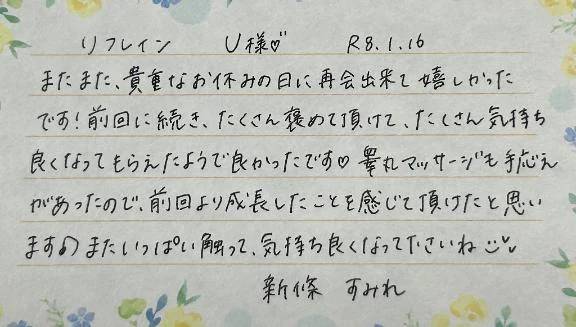 リフレイン U様♡ R8.1.16
またまた、貴重なお休みの日に再会出来て嬉しかった
です！前回に続き、たくさん褒めて頂けて、たくさん気持ち
良くなってもらえたようで良かったです♡ 睾丸マッサージも手応え
があったので、前回より成長したことを感じて頂けたと思い
ます♪ またいっぱい触って、気持ち良くなってださいね
新條 すみれ